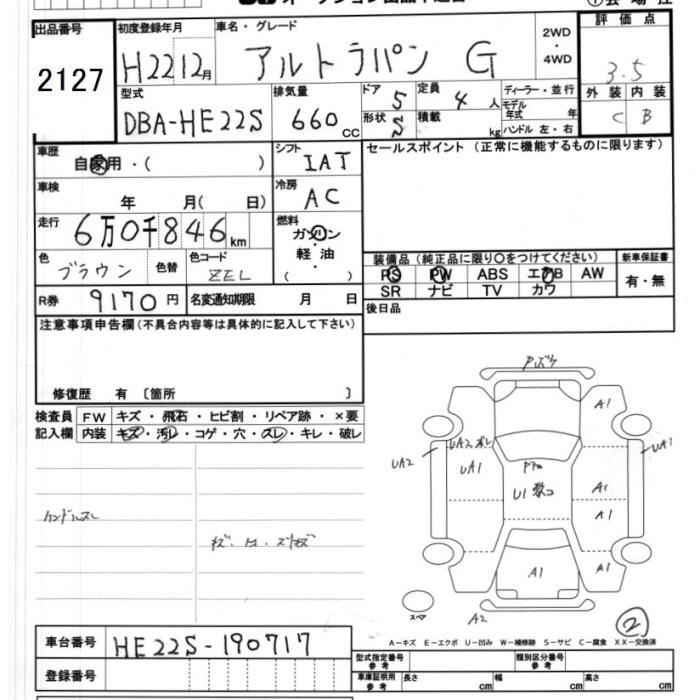 出品番号 初度登録年月 車名・グレード 2WD・4WD 評価点
2127 H22 12月 アルトラパン G 3.5
型式 排気量 ドア 5 定員 4人 ディーラー・並行 外装 内装
DBA-HE22S 660cc 形状 S 積載 kg モデル年式 年 C B
ハンドル 左・右
車歴 自家用・( ) シフト IAT セールスポイント(正常に機能するものに限ります)
車検 年 月( 日) 冷房 AC
走行 6万0千846km 燃料 ガソリン 軽油 ( )
色 ブラウン 色替 色コード ZEL
装備品(純正品に限り○をつけてください) 新車保証書
PS PW ABS エアB AW 有・無
SR ナビ TV カワ
R券 9170円 名変通知期限 月 日 後日品
注意事項申告欄(不具合内容等は具体的に記入して下さい)
修復歴 有 〔箇所 〕
検査員記入欄 FW キズ・飛石・ヒビ割・リペア跡・×要
内装 キズ・汚レ・コゲ・穴・スレ・キレ・破レ
ハンドルスレ
A1
UA2 UA1
UA2
UA1 U1 A1
A1
A1 A1
スペア A2 2
A−キズ E−エクボ U−凹み W−補修跡 S−サビ C−腐食 XX−交換済
車台番号 HE22S-190717
登録番号
型式指定番号参考 類別区分番号参考
車庫証明用参考 長さ cm 幅 cm 高さ cm